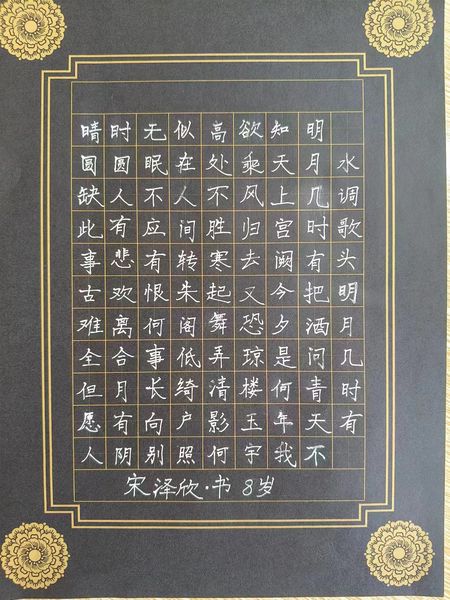 水调歌头明月几时有
明月几时有把酒问青天不
知天上宫阙今夕是何年我
欲乘风归去又恐琼楼玉宇
高处不胜寒起舞弄清影何
似在人间转朱阁低绮户照
无眠不应有恨何事长向别
时圆人有悲欢离合月有阴
晴圆缺此事古难全但愿人
宋泽欣·书 8岁